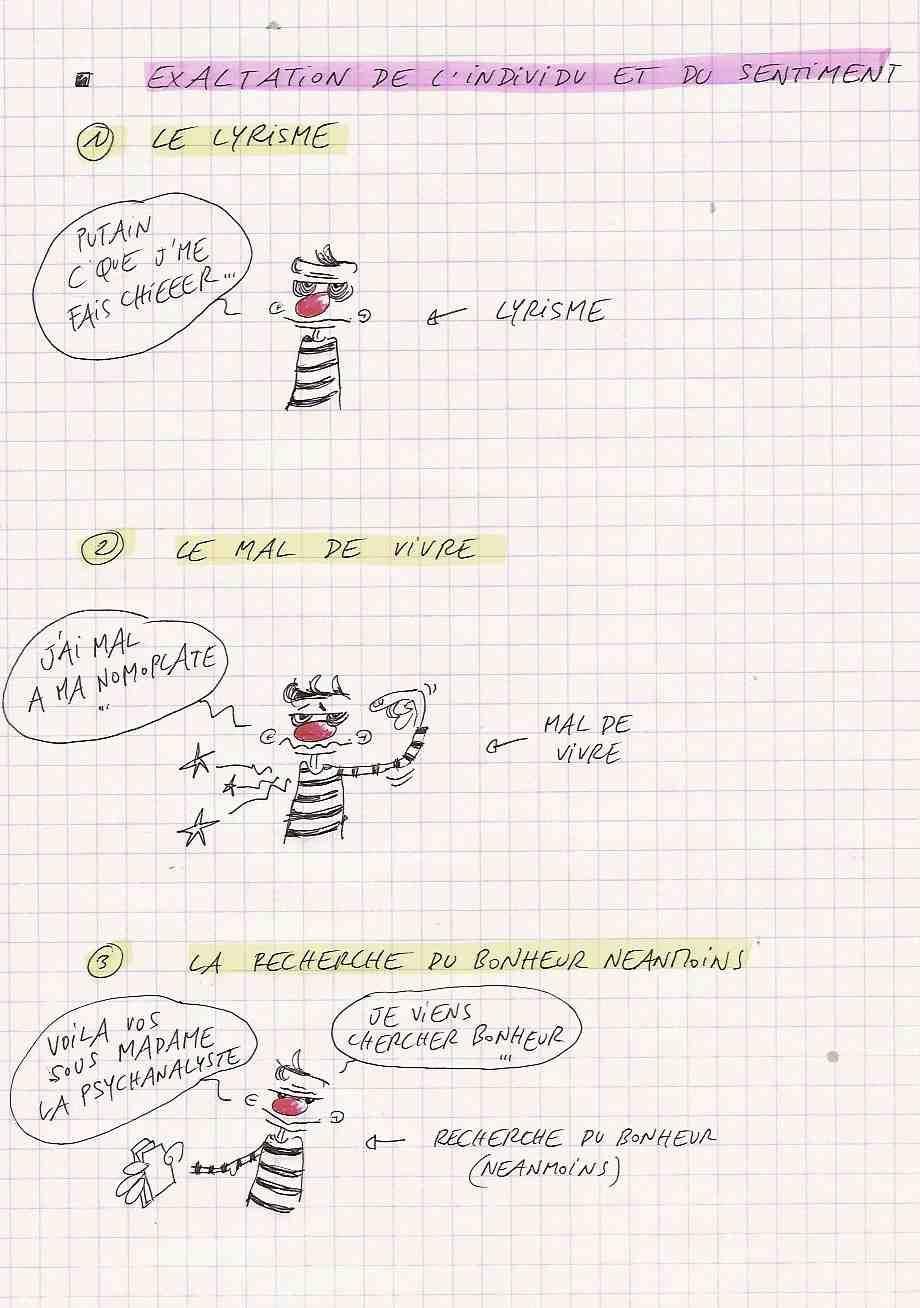 EXALTATION DE L'INDIVIDU ET DU SENTIMENT
1 LE LYRISME
PUTAIN
C'QUE J'ME
FAIS CHIEEER...
← LYRISME
2 LE MAL DE VIVRE
J'AI MAL
A MA NOMOPLATE
...
← MAL DE
VIVRE
3 LA RECHERCHE DU BONHEUR NEANMOINS
VOILA VOS
SOUS MADAME
LA PSYCHANALYSTE
JE VIENS
CHERCHER BONHEUR
...
← RECHERCHE DU BONHEUR
(NEANMOINS)